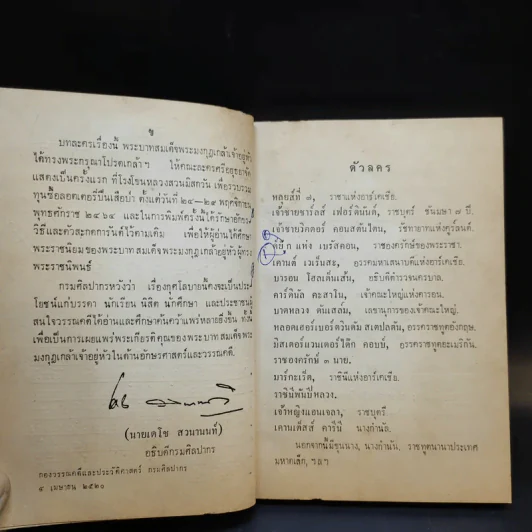 ข
บทละครเรื่องนี้ พระบาทสมเด็จพระมงกุฎเกล้าเจ้าอยู่หัว
ได้ทรงพระกรุณาโปรดเกล้าฯ ให้คณะละคร
แสดงเป็นครั้งแรก ที่โรงโขนหลวงสวนมิสกวัน เพื่อรวบรวม
ทุนซื้อลอตเตอรี่ปืนเสือป่า ตั้งแต่วันที่ ๒๔–๒๙ พฤศจิกายน
พุทธศักราช ๒๔๖๔ และในการพิมพ์ครั้งนี้ได้รักษาอักขร
วิธีและตัวสะกดการันต์ไว้ตามเดิม เพื่อให้ผู้อ่านได้ศึกษา
พระราชนิยมของพระบาทสมเด็จพระมงกุฎเกล้าเจ้าอยู่หัวผู้ทรง
พระราชนิพนธ์
กรมศิลปากรหวังว่า เรื่องกุศโลบายนี้คงจะเป็นประ
โยชน์แก่บรรดา นักเรียน นิสิต นักศึกษา และประชาชน
สนใจวรรณคดีได้อ่านและศึกษาค้นคว้าแพร่หลายยิ่งขึ้น ทั้งนี้
เพื่อเป็นการเผยแพร่พระเกียรติคุณของพระบาทสมเด็จพระ
มงกุฎเกล้าเจ้าอยู่หัวในด้านอักษรศาสตร์และวรรณคดี.
(นายเดโช สวนานนท์)
อธิบดีกรมศิลปากร
กองวรรณคดีและประวัติศาสตร์ กรมศิลปากร
๔ เมษายน ๒๕๒๑
ตัวลคร
หลุยส์ที่ ๗, ราชาแห่งอาร์คเชีย.
เจ้าชายชาร์ลส์ เฟอร์ดินันด์, ราชบุตร์ ชันมษา ๗ ปี.
เจ้าชายวิคตอร์ คอนสตันไตน, รัชทายาทแห่งคุร์ลนด์.
ดยุ๊ก แห่ง เบรัสคอน, ราชองครักษ์ของพระราชา.
เคานต์ เวเร็นสะ, อรรคมหาเสนาบดีแห่งอาร์คเชีย.
บารอน โฮลเด็นเส้น, อธิบดีตำรวจนครบาล.
คาร์ดินัล คะสาโน, เจ้าคณะใหญ่แห่งคารอน.
บาดหลวง ดันเสลม์, เลขานุการของเจ้าคณะใหญ่.
หลอดเฮอร์เบอร์ตวินดัม สเตปลตัน, อรรคราชทูตอังกฤษ.
มิสเตอร์แวนเดอร์ได๊ก คอบบ์, อรรคราชทูตอะเมริกัน.
ราชองครักษ์ ๓ นาย.
มาร์กะเร็ต, ราชินีแห่งอาร์คเชีย.
ราชินีพันปีหลวง.
เจ้าหญิงแอนเจลา, ราชบุตรี
เคานเต็สส์ คารินี นางกำนัล.
นอกจากนี้มีขุนนาง, นางกำนัน, ราชทูตนานาประเทศ
มหาดเล็ก, ฯลฯ